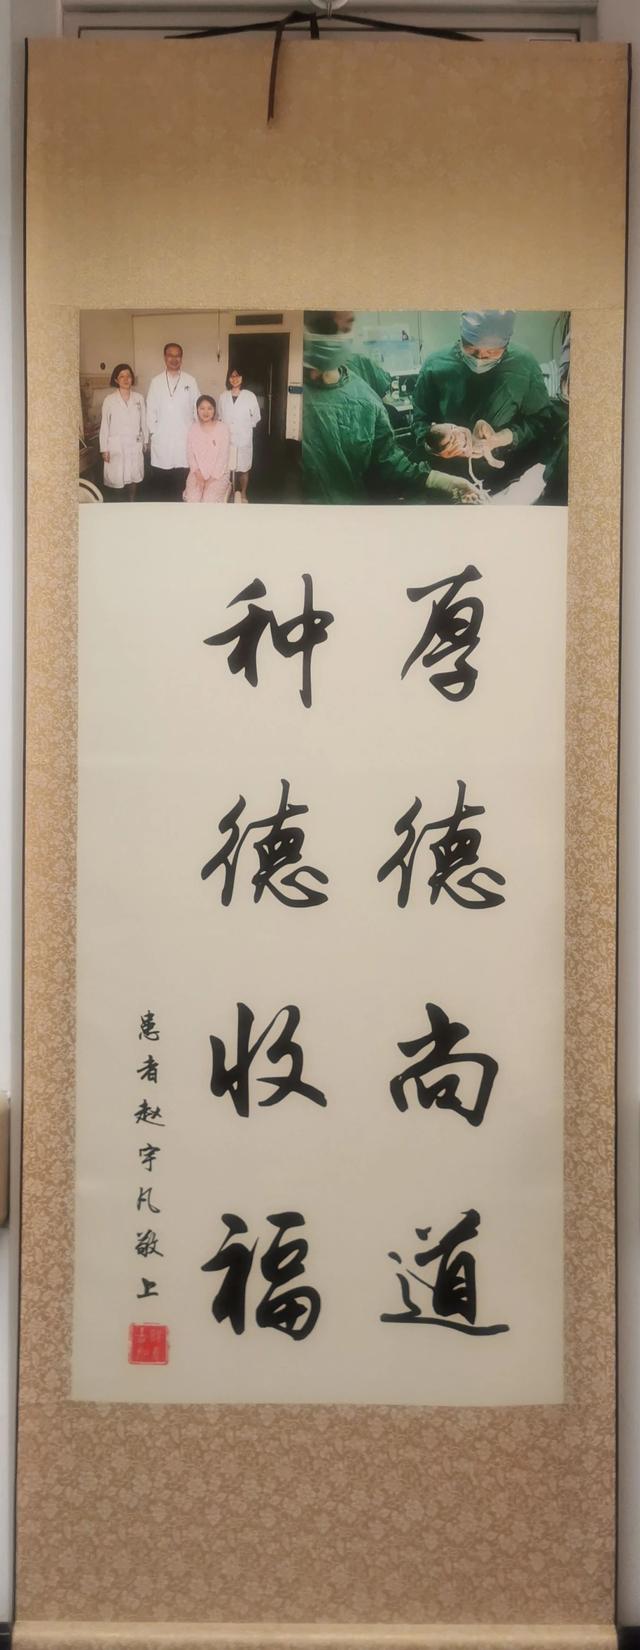 厚德尚道
种德收福
患者赵宇凡敬上